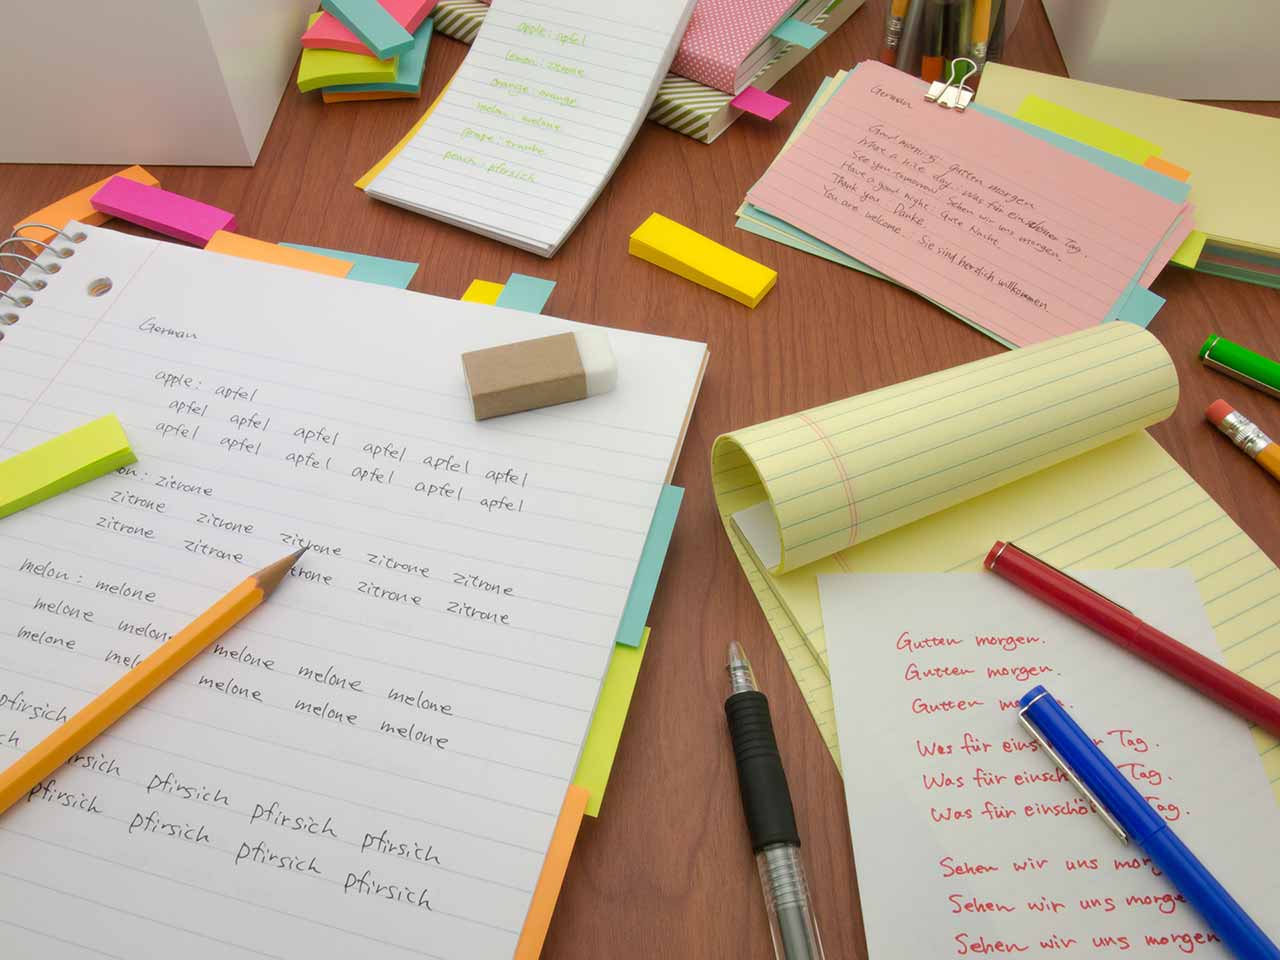 apple : apfel
lemon : zitrone
orange : orange
melon : melone
grape : traube
peach : pfirsich
German
Good morning : gutten morgen
Have a nice day : Was für einschöner Tag.
See you tomorrow Sehen wir uns morgen.
Have a good night Gute Nacht.
Thank you Danke.
You are welcome. Sie sind herzlich willkommen.
German
apple : apfel
apfel apfel apfel apfel apfel apfel
apfel apfel apfel apfel apfel apfel
on : zitrone
zitrone zitrone zitrone zitrone zitrone
zitrone zitrone trone zitrone zitrone
melon : melone
melone melon melone melone melone
melone mel melone melone melone
pfirsich
ch irsich pfirsich pfirsich pfirsich
pfirsich pfirsich pfirsich pfirsich
Gutten morgen.
Gutten morgen.
Gutten mo
Was für eins r Tag.
Was für einsch Tag.
Was für einschö Tag.
Sehen wir uns mor
Sehen wir uns morge
Sehen wir uns morgen